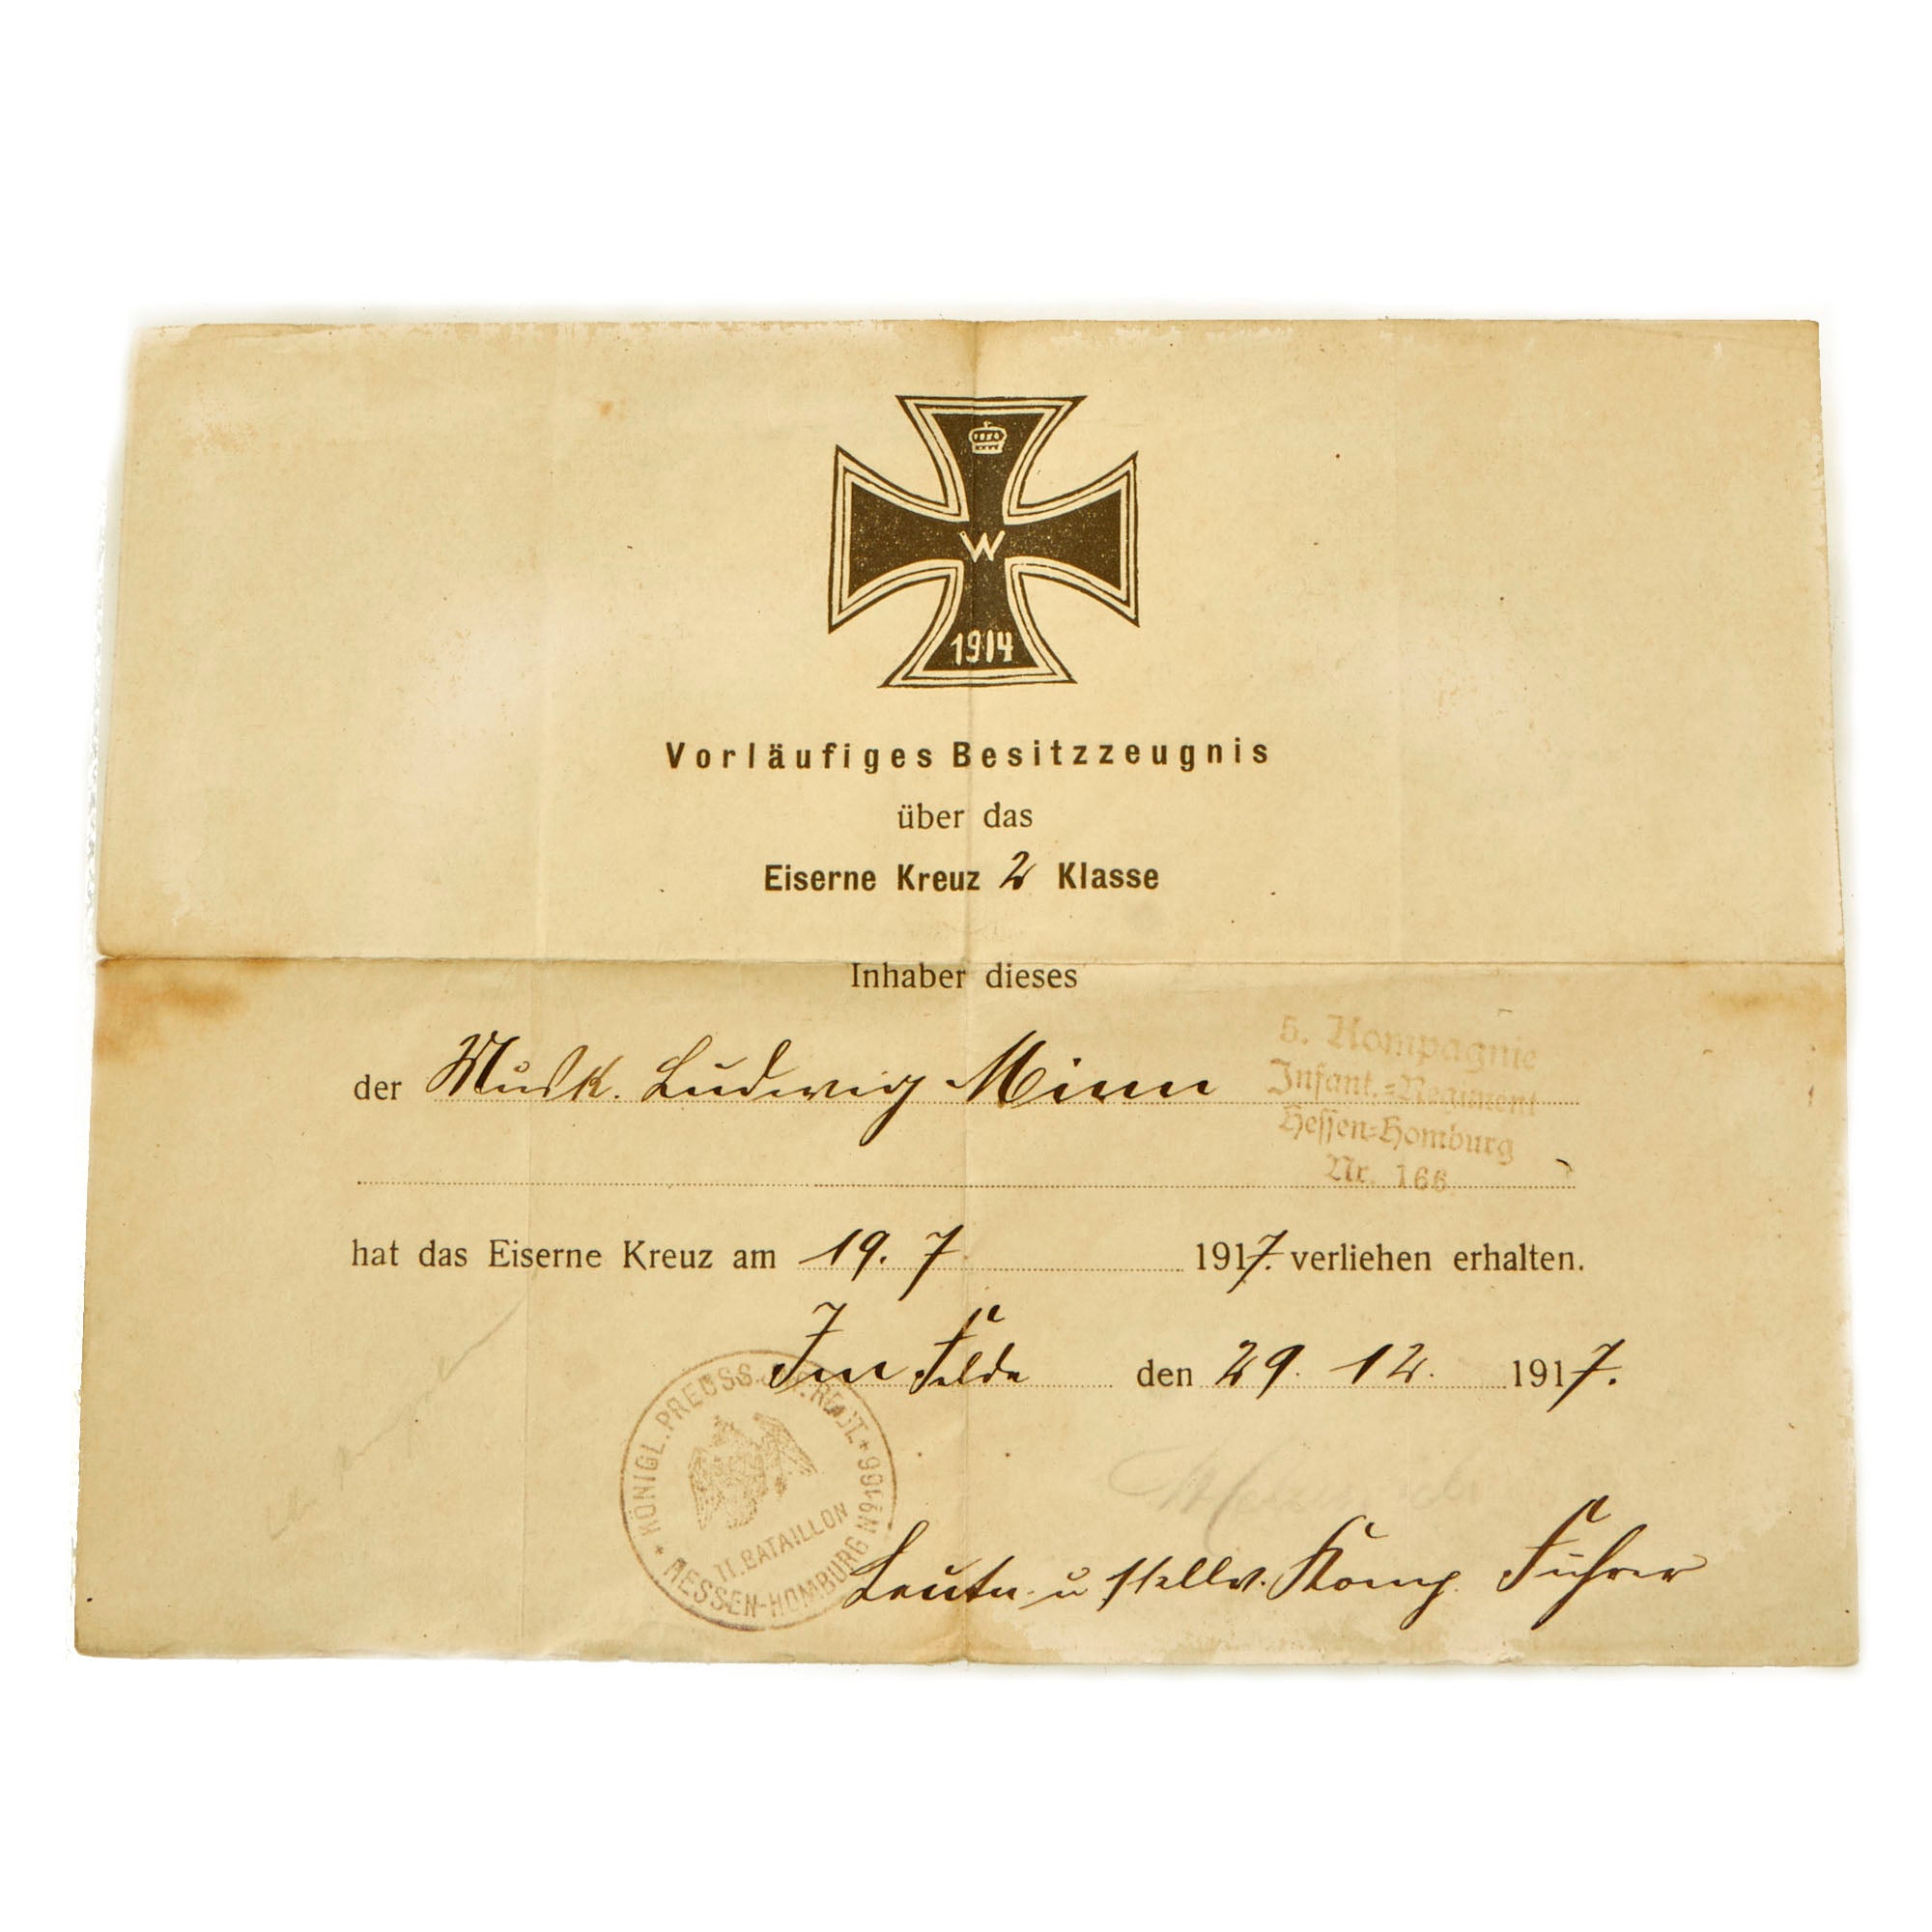 W
1914
Vorläufiges Besitzzeugnis
über das
Eiserne Kreuz 2 Klasse
Inhaber dieses
der Musk. Ludwig Minn
5. Kompagnie
Infant.-Regiment
Hessen-Homburg
Nr. 166
hat das Eiserne Kreuz am 19. 7 1917. verliehen erhalten.
Im Felde den 29. 12. 1917.
* KÖNIGL. PREUSS. INF. REGT. * HESSEN-HOMBURG No 166
II. BATAILLON
Leutn. u stellv. Komp. Führer